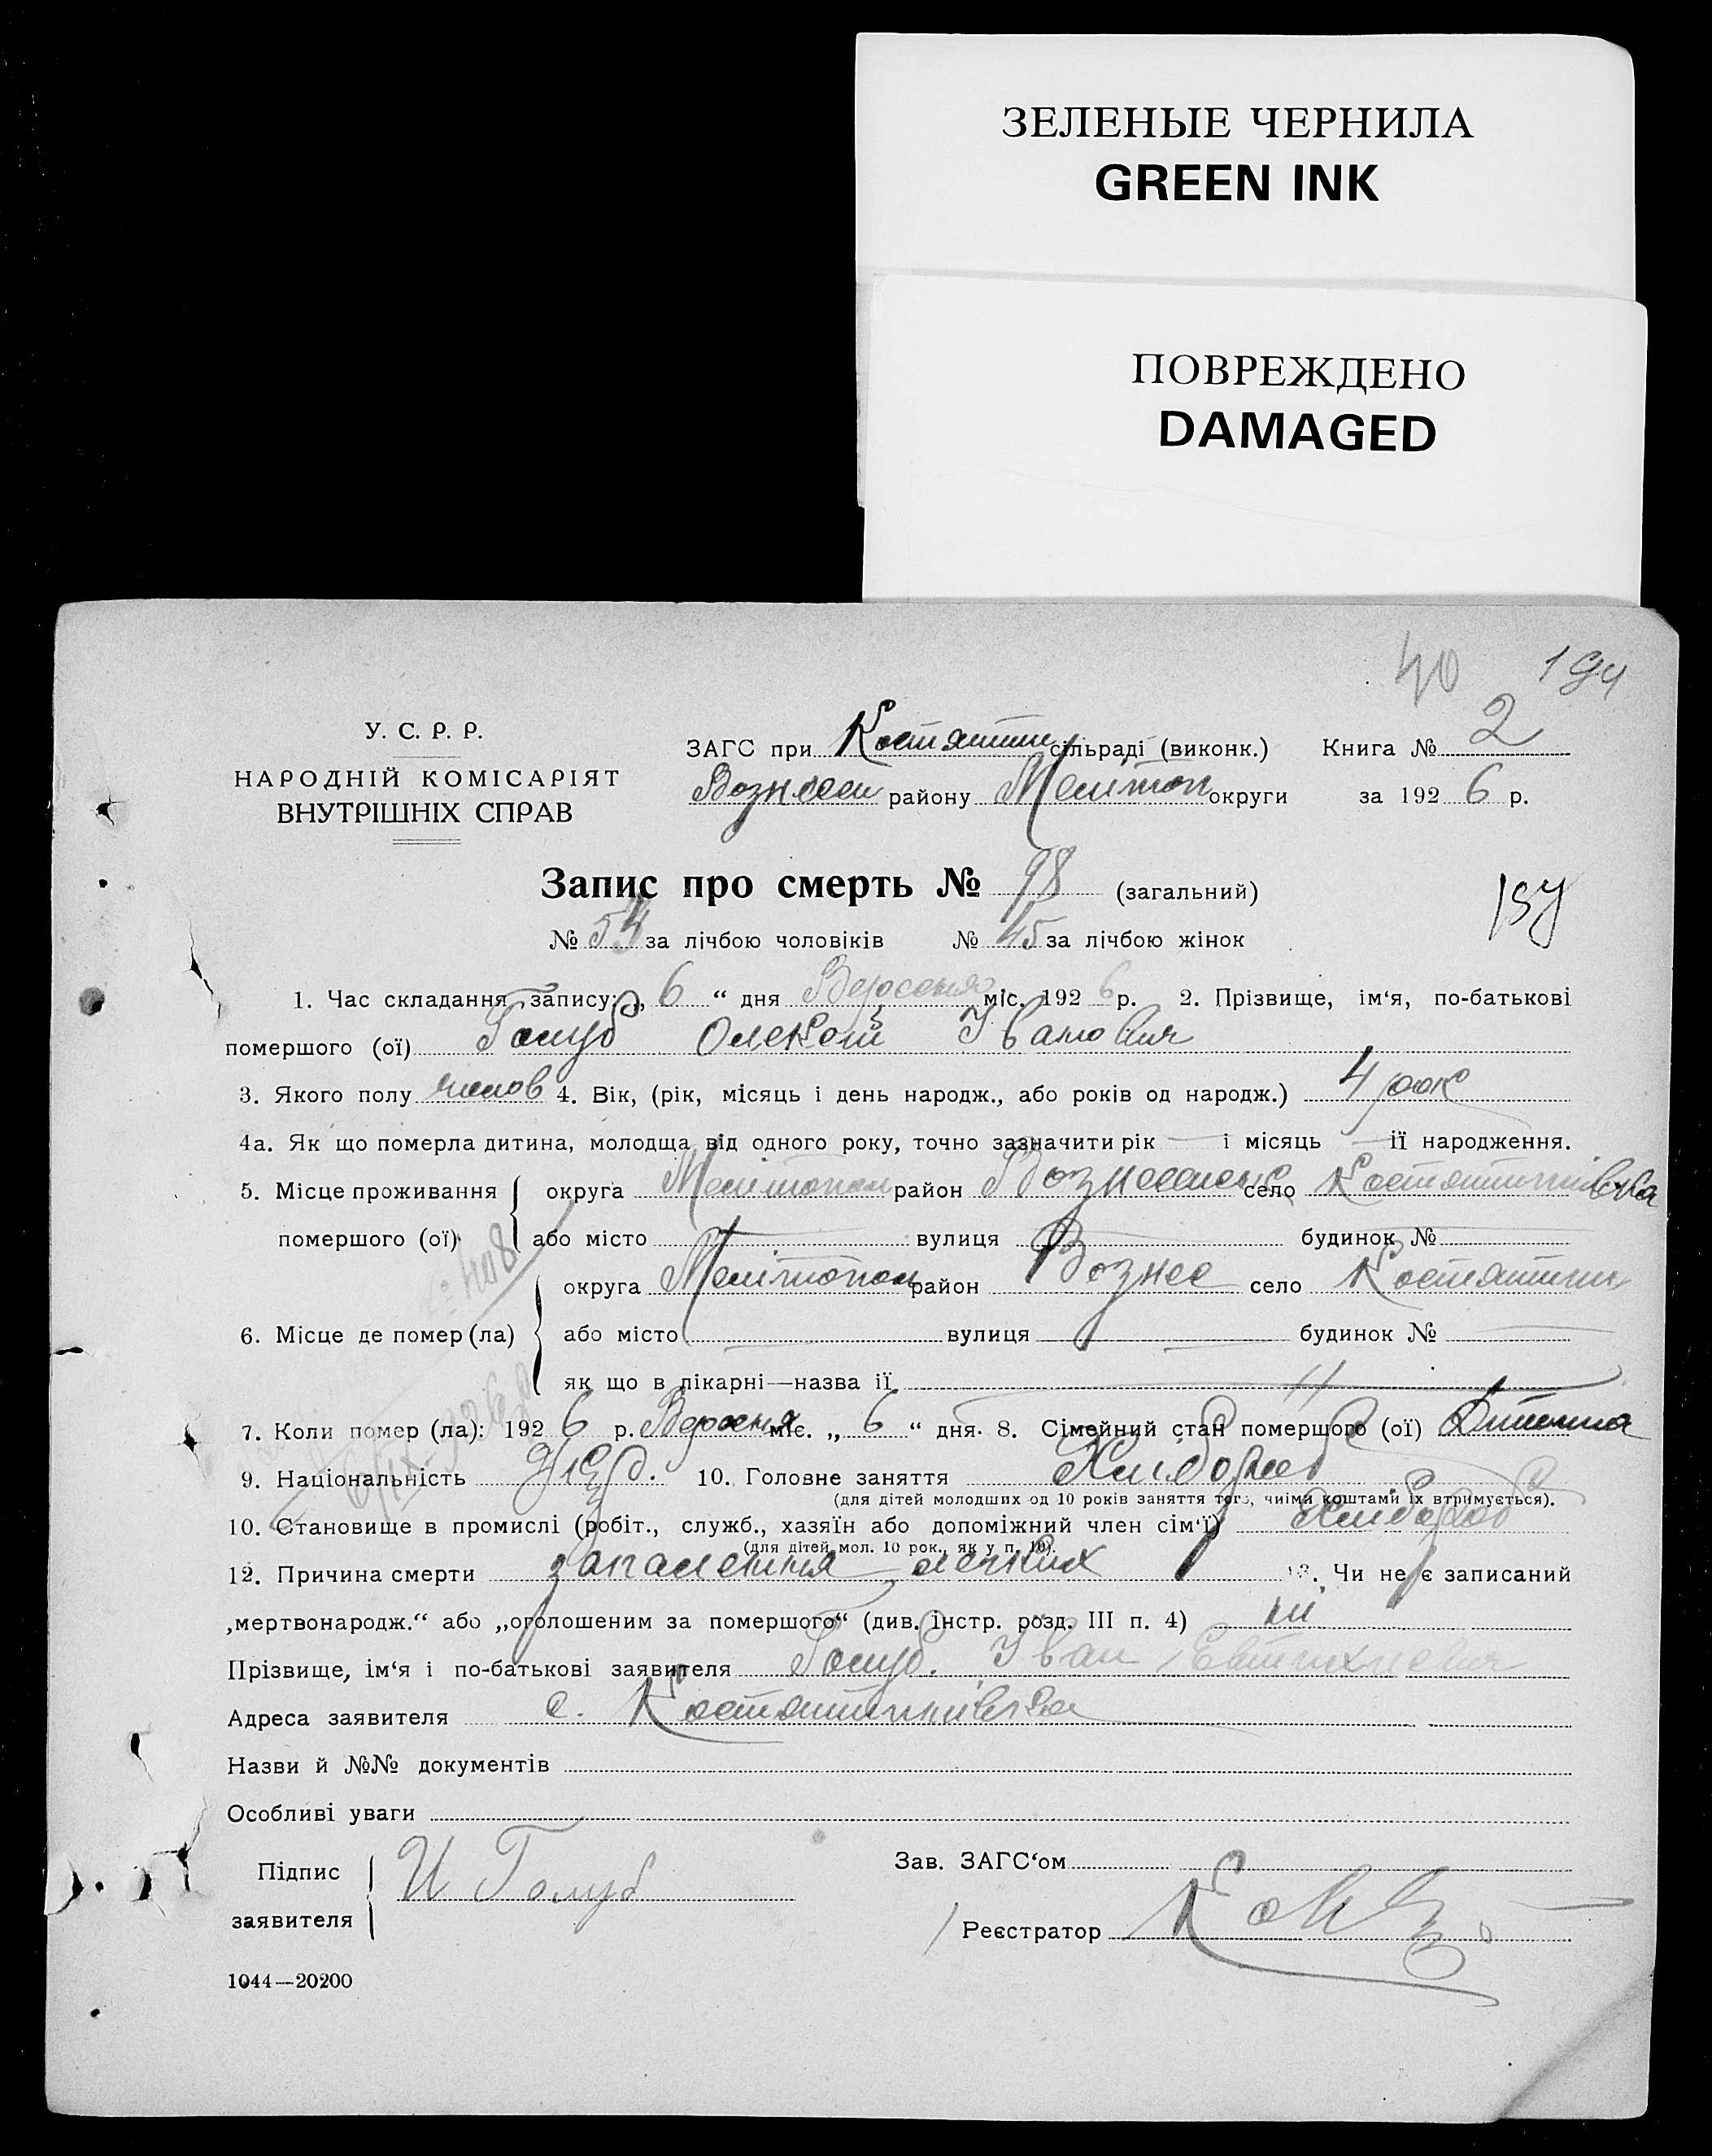 ЗЕЛЕНЫЕ ЧЕРНИЛА
GREEN INK
ПОВРЕЖДЕНО
DAMAGED
40 194
У. С. Р. Р.
НАРОДНІЙ КОМІСАРІЯТ
ВНУТРІШНІХ СПРАВ
ЗАГС при Костянтин сільраді (виконк.) Книга № 2
Вознесен району Мелітоп округи за 192 6 р.
Запис про смерть № 98 (загальний)
№ 54 за лічбою чоловіків № 45 за лічбою жінок
1. Час складання запису: „ 6 “ дня Вересня міс. 192 6 р. 2. Прізвище, ім‘я, по-батькові
помершого (ої) Голуб Олексій Іванович
3. Якого полу чолов 4. Вік, (рік, місяць і день народж., або років од народж.) 4 рок
4а. Як що померла дитина, молодща від одного року, точно зазначити рік — і місяць — її народження.
5. Місце проживання округа Мелітопол район Вознесенск село Костянтинівка
помершого (ої) або місто вулиця будинок №
округа Мелітопол район Вознес село Костянтин
6. Місце де помер (ла) або місто вулиця будинок №
як що в лікарні—назва її
7. Коли помер (ла): 192 6 р. Вересня міс. „ 6 “ дня. 8. Сімейний стан помершого (ої) Дитина
9. Національність 10. Головне заняття Хлібороб
(для дітей молодших од 10 років заняття того, чиїми коштами їх втримується).
10. Становище в промислі (робіт., служб., хазяїн або допоміжний член сім‘ї) Хлибороб
(для дітей мол. 10 рок., як у п. 10).
12. Причина смерти запалення легких 13. Чи не є записаний
„мертвонародж.“ або „оголошеним за помершого“ (див. інстр. розд. III п. 4) ні
Прізвище, ім‘я і по-батькові заявителя Голуб Іван Евтихиевич
Адреса заявителя с. Костянтинівка
Назви й №№ документів
Особливі уваги
Підпис заявителя И Голуб
Зав. ЗАГС‘ом
Реєстратор
1044—20200